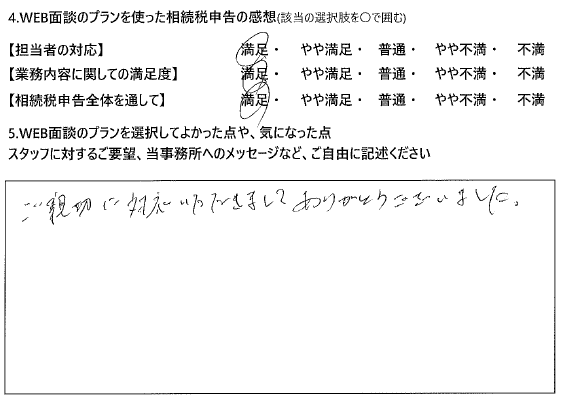 4.WEB面談のプランを使った相続税申告の感想(該当の選択肢を〇で囲む)
【担当者の対応】 満足・ やや満足・ 普通・ やや不満・ 不満
【業務内容に関しての満足度】 満足・ やや満足・ 普通・ やや不満・ 不満
【相続税申告全体を通して】 満足・ やや満足・ 普通・ やや不満・ 不満
5.WEB面談のプランを選択してよかった点や、気になった点
スタッフに対するご要望、当事務所へのメッセージなど、ご自由に記述ください
ご親切に対応いただきましてありがとうございました。